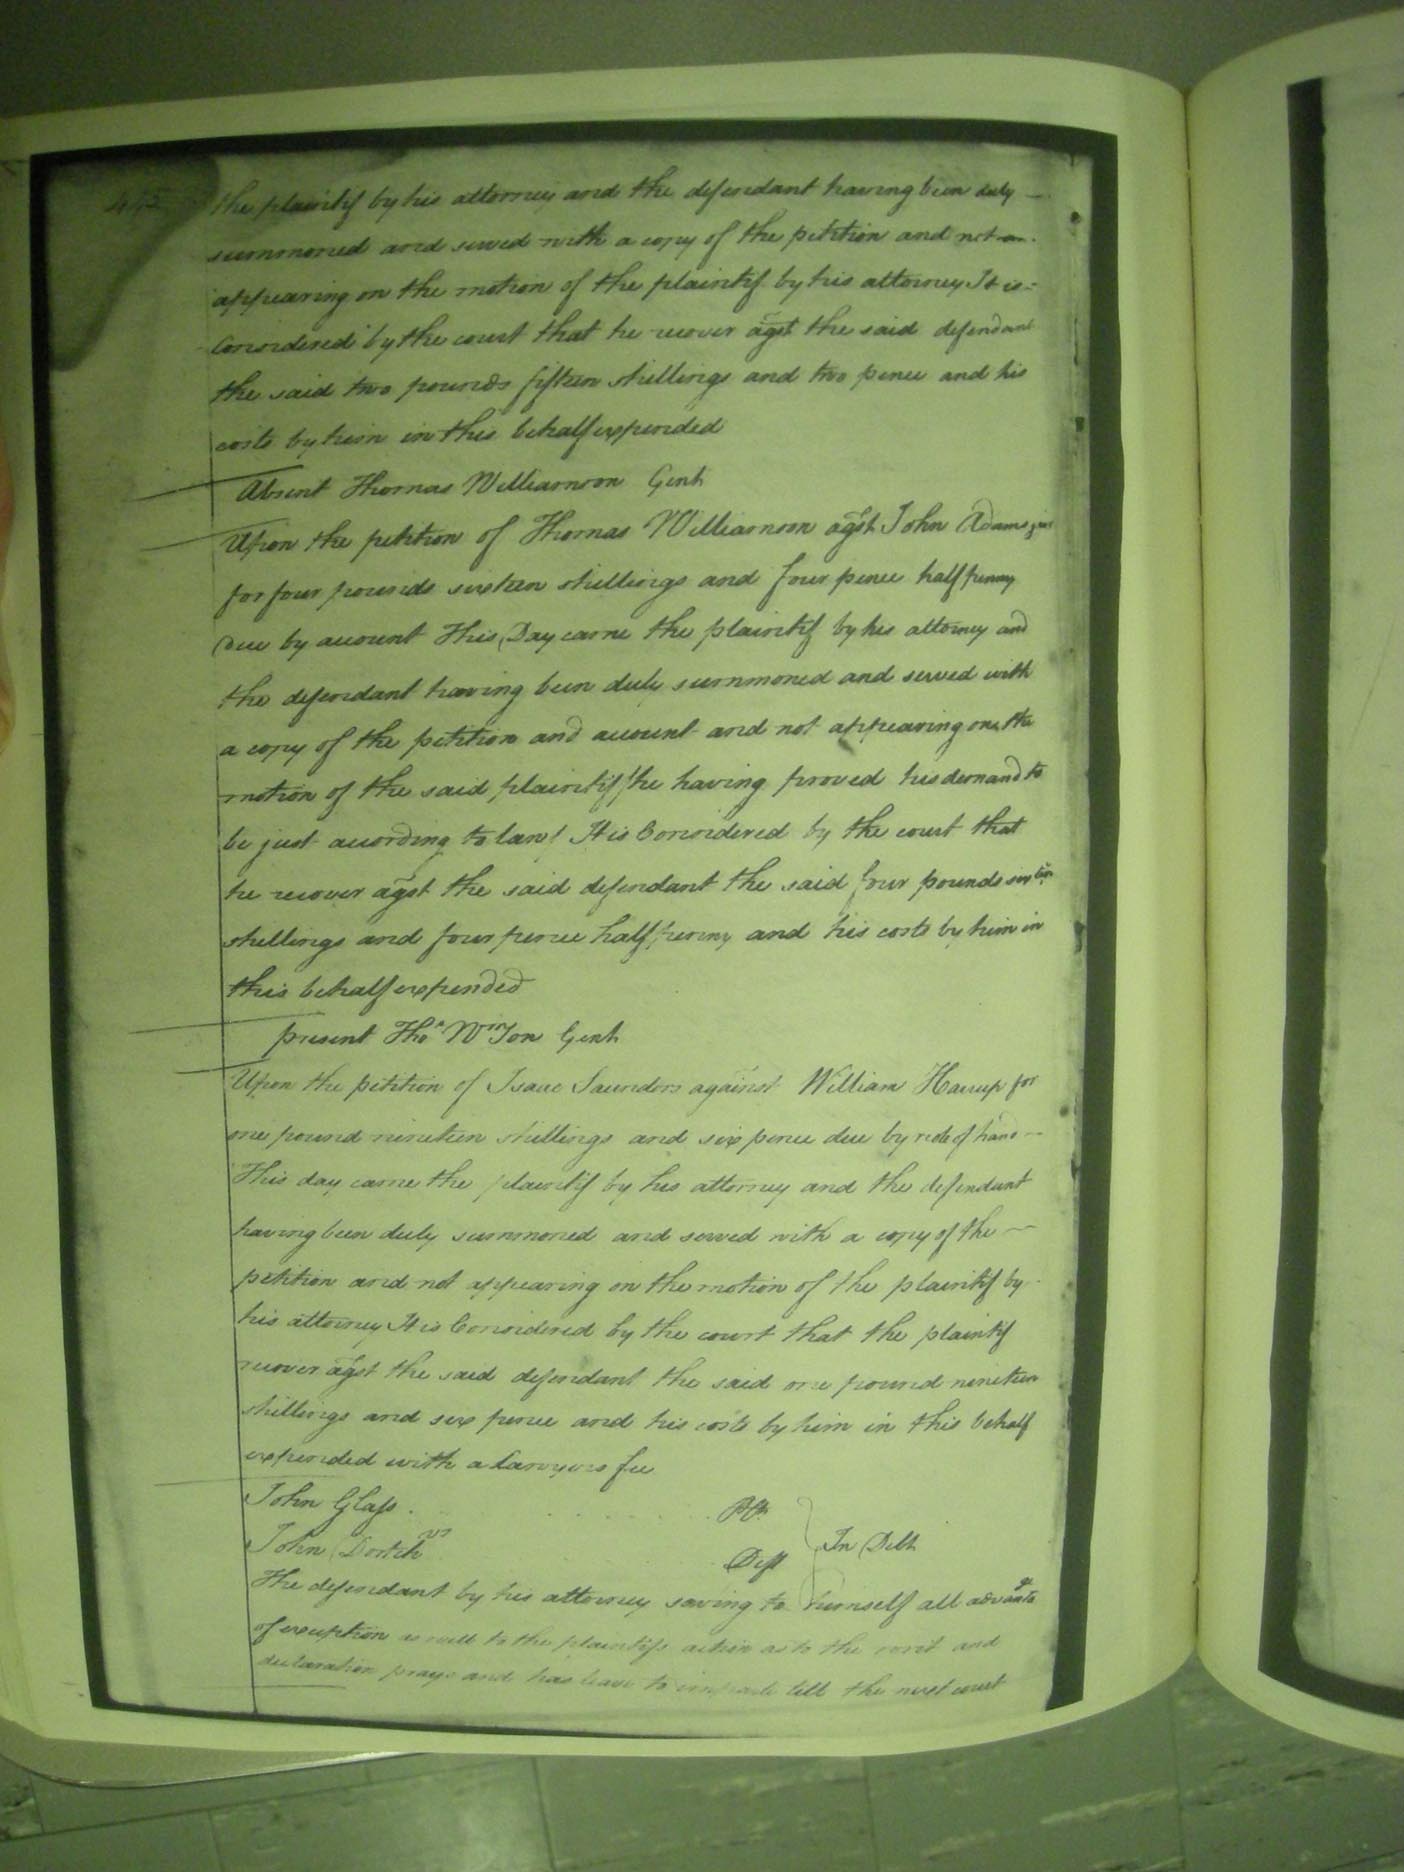 442
the plaintif by his attorney and the defendant having been duly —
summoned and served with a copy of the petition and not
appearing on the motion of the plaintif by his attorney It is
Considered by the court that he recover agst the said defendant
the said two pounds fifteen shillings and two pence and his
costs by him in this behalf expended
Absent Thomas Williamson Gent
Upon the petition of Thomas Williamson agst John Adams jun
for four pounds sixteen shillings and four pence half penny
Due by account This Day came the plaintif by his attorney and
the defendant having been duly summoned and served with
a copy of the petition and account and not appearing on the
motion of the said plaintif (he having proved his demand to
be just acording to law) It is Considered by the court that
he recover agst the said defendant the said four pounds sixten
shillings and four pence half penny and his costs by him in
this behalf expended
present Thos Wmson Gent
Upon the petition of Isaac Saunders against William Harrup for
one pound nineteen shillings and six pence due by note of hand —
This day came the plaintif by his attorney and the defendant
having been duly summoned and served with a copy of the —
petition and not appearing on the motion of the plaintif by
his attorney It is Considered by the court that the plaintif
recover agst the said defendant the said one pound nineteen
shillings and six pence and his costs by him in this behalf
expended with a Lawyers fee
John Glass Plt
vs In Debt
John Dortch Deft
The defendant by his attorney saving to himself all advantage
of exception as well to the plaintifs action as to the writ and
declaration prays and has leave to imparle till the next court